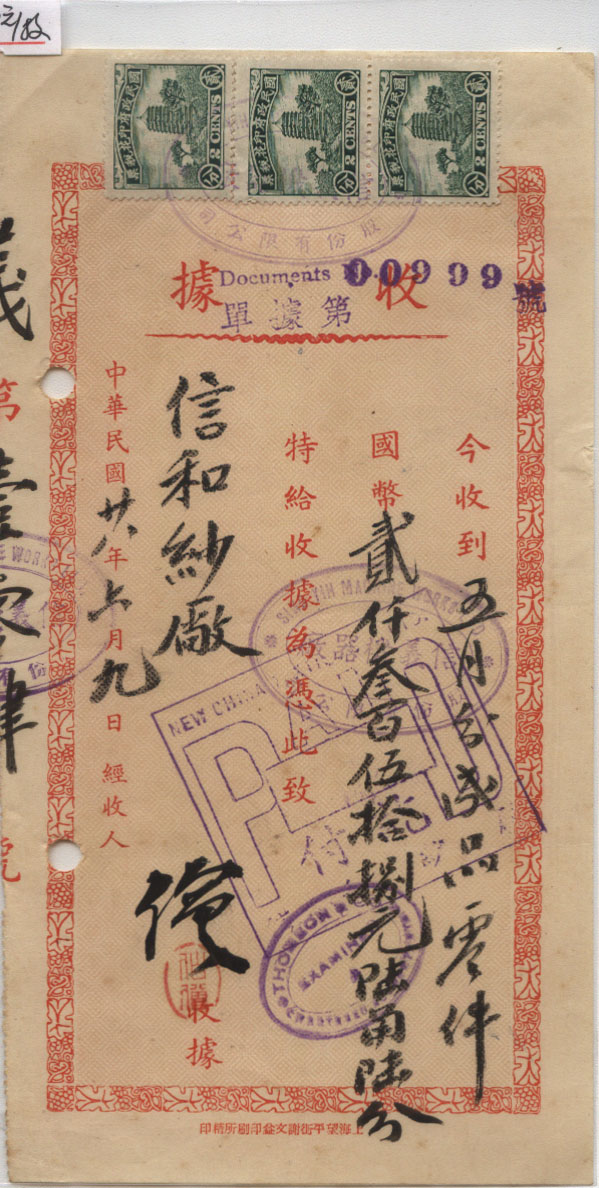 國民政府印花稅票
貳分
2 CENTS
國民政府印花稅票
貳分
2 CENTS
國民政府印花稅票
貳分
2 CENTS
股份有限公司
收據
Documents No. 00999
單據第
號
今收到五月份成品零件
國幣貳仟叁百伍拾捌元陸角陸分
特給收據為憑此致
信和紗廠
中華民國廿八年七月九日 經收人
收據
信義機器廠
NEW CHINA
PAID
付
THOMSON
EXAMINED
CHARTERED
義
第
號
上海望平街謝文益印刷所精印